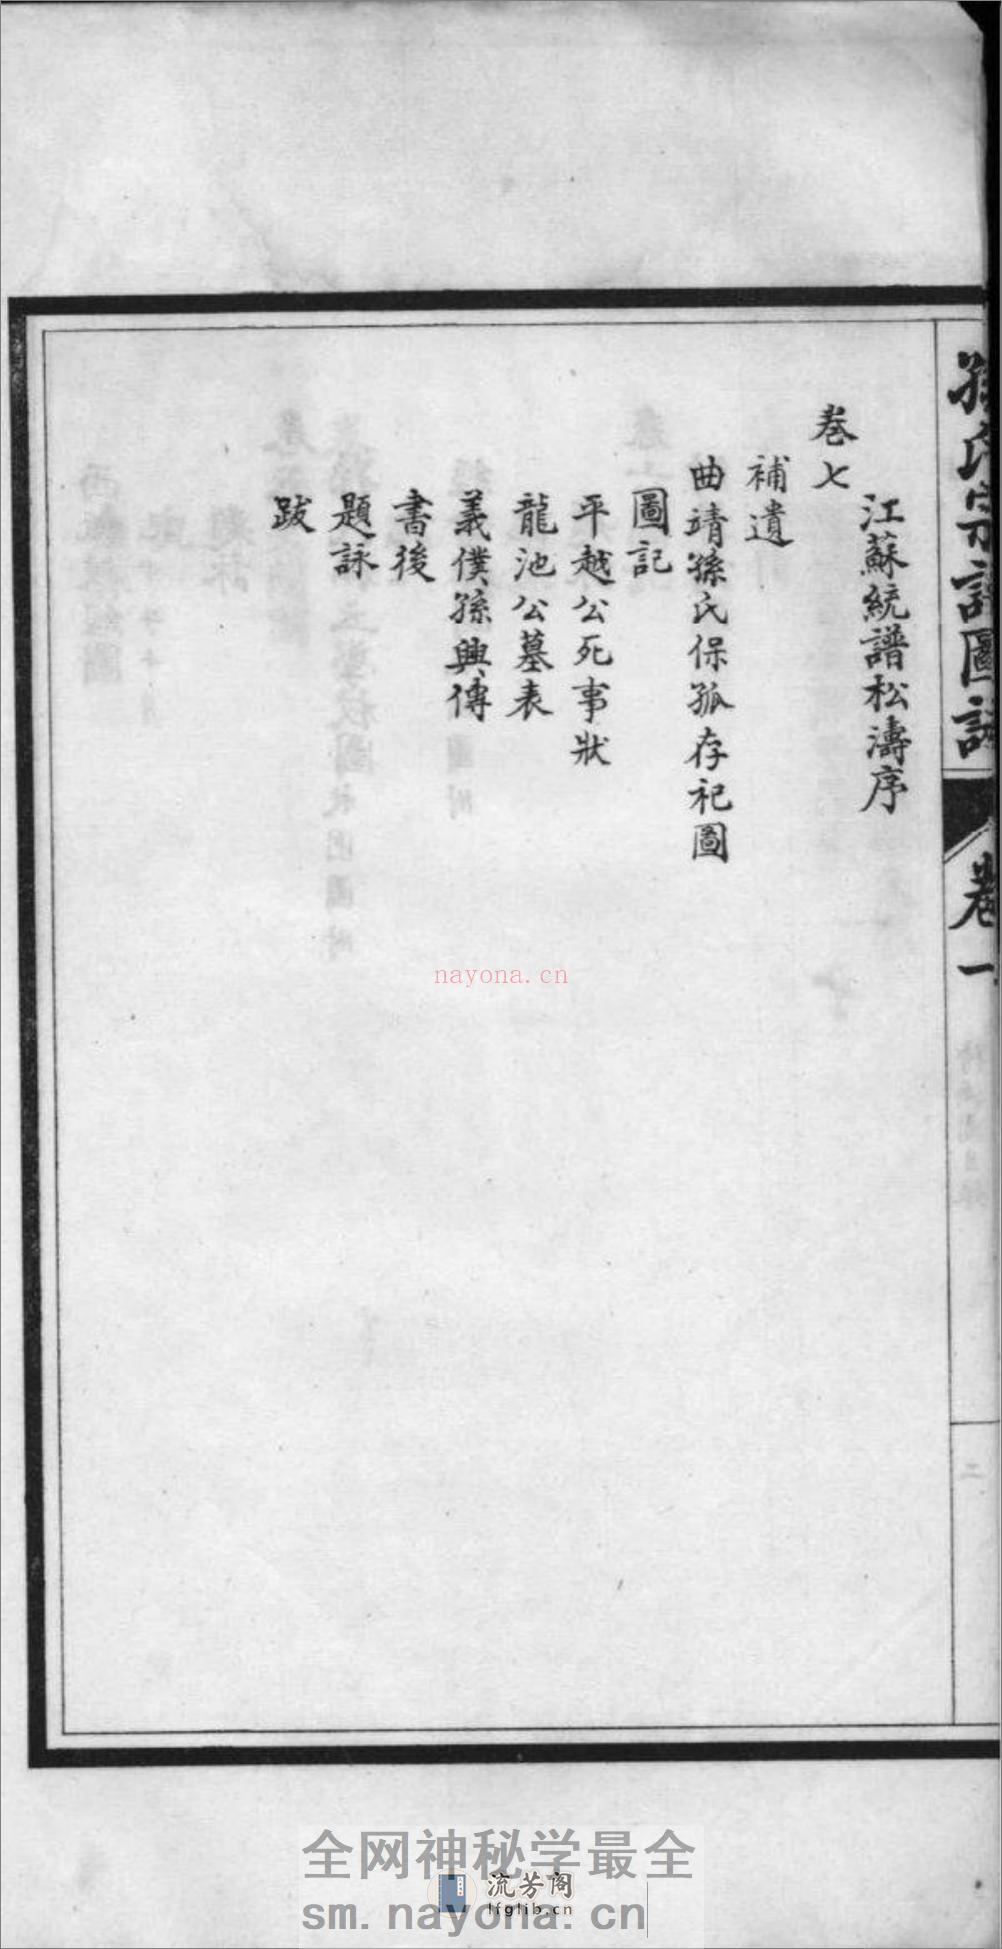 孫氏宗譜圖誌
卷一
江蘇統譜松濤序
卷七
補遺
曲靖孫氏保孤存祀圖
圖記
平越公死事狀
龍池公墓表
義僕孫興傳
書後
題詠
跋
nayona.cn
全网神秘学最全
流芳阁
lfglib.cn
sm.nayona.cn